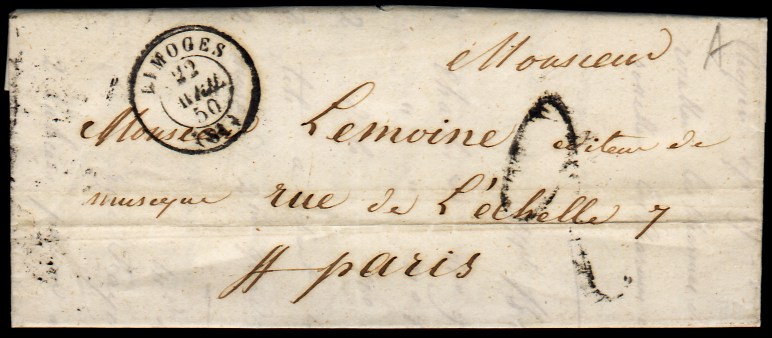 LIMOGES
22
AVRIL
50
(81)
A
Monsieur
Monsieur Lemoine editeur de
musique rue de L'échelle 7
paris